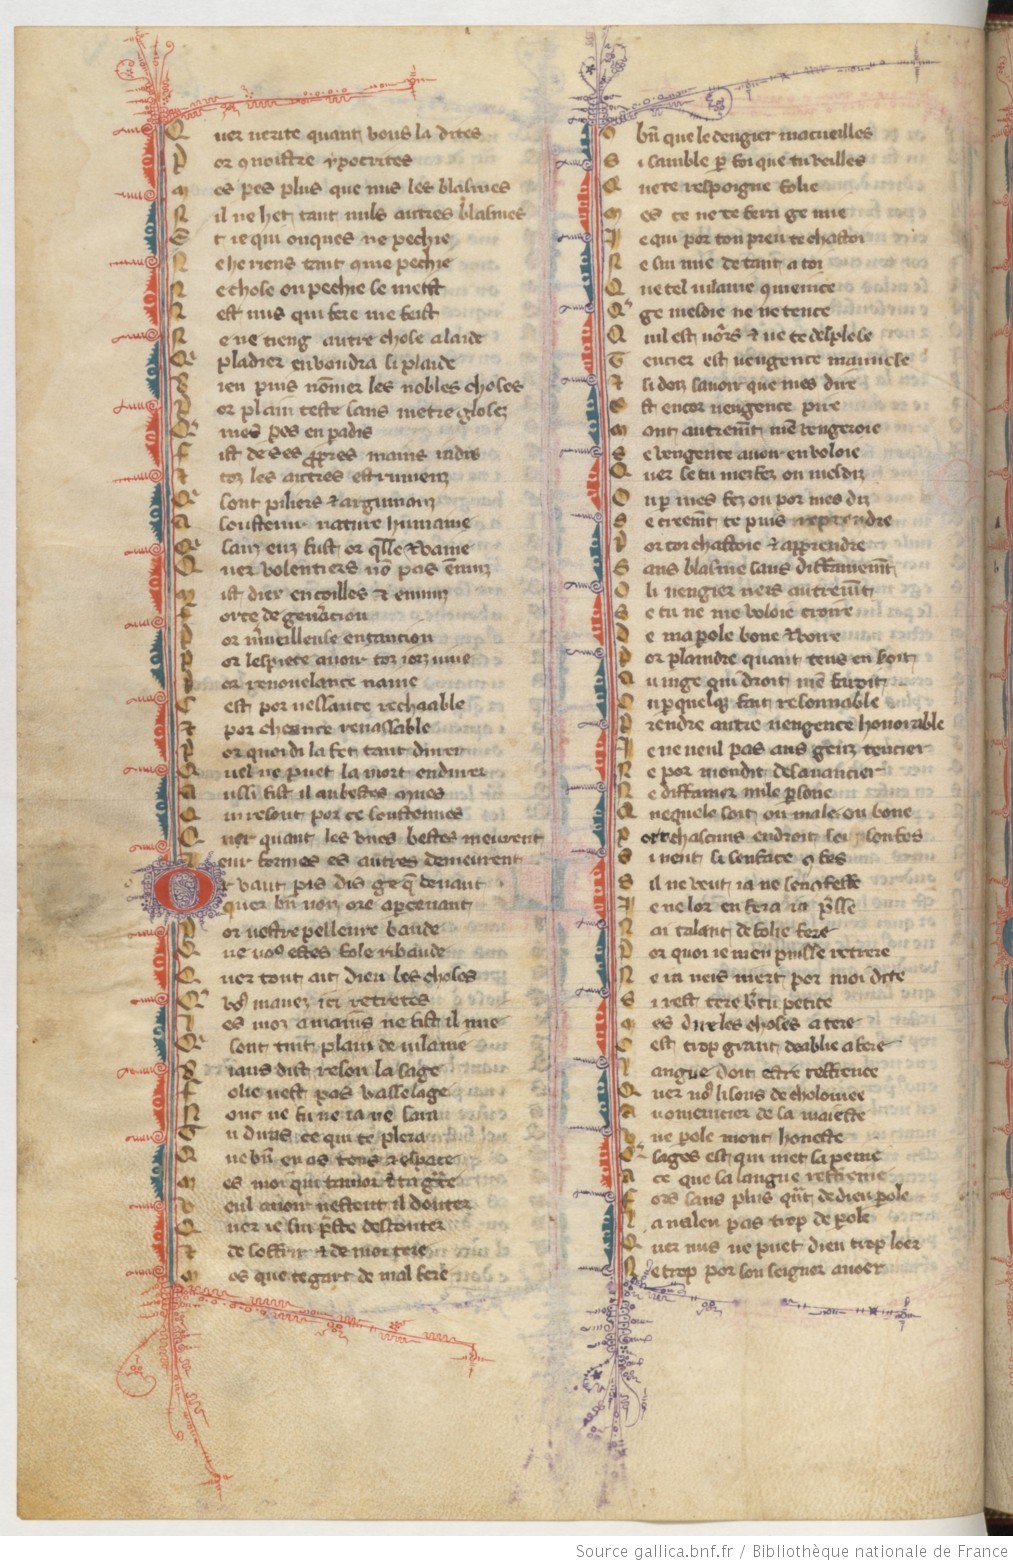 Q uer uerite quant vous la dites
P or 9noistre ypocrites
M es pes plus que nus les blasmes
N il ne het tant nuls autres blasmes
E t ie qui onques ne pechie
N e he riens tant 9me pechie
N e chose ou pechie se meist
N est nus qui fere me feist
N e ne tieng autre chose a laide
Q pladier en voudra li plaide
B ien puis nomer les nobles choses
P or plain teste sans metre gloses
Q mes pes en padis
F ist de ses propres mains iadis
T toz les autres estrumenz
Q sont piliers & argumanz
A soustenir nature humaine
Q sanz eus fust or q̄sse & vaine
Q uer volentiers nō pas
M ist dieu en coilles &
F orce de gen̄acion
P or m̄ueilleuse entancion
P or lespiece auoir toz iorz uiue
P or renouelance naiue
C est por nessance rechaable
T por cheance renaissable
P or quoi di la fet tant durer
Q uel ne puet la mort endurer
A ussi fist il au bestes mues
Q ui resont por ce soustenues
C uer quant les unes bestes meurent
L eur formes es autres demeurent
O r vaut pis dis ge q̄ deuant
quer bn̄ voi ore ap̄ceuant
P or uestre pelleure baude
Q ue vos estes fole ribaude
C uer tout ait dieu les choses
Q vos manez ici retretes
L es moz a mains ne fist il mie
Q sont tuit plain de uilanie
B iaus dist reson la sage
F olie nest pas vasselage
N onc ne fu ne ia ne sara
T u diras ce qui te plera
Q ue bn̄ en as tens & espace
M es moi qui tamor & ta grace
V eul auoir nestuet il douter
Q uer ie sui p̄ste descouter
T de soffrir & de moi tere
M es que te gart de mal fere
O bn̄ que ledengier macueilles
S i samble p̄ foi que tu veilles
Q ue te respoigne folie
M es ce ne te ferai ge mie
I e qui por ton preu te chastoi
N e sui mie de tant a toi
Q ue tel uilanie 9mence
Q ge mesdie ne ne tence
Q uil est vors & ne te desplese
T encier est uengence mauuese
T si doiz sauoir que mes dire
E st encor uengence pire
M out autremt̄ mē vengeroie
S e vengence auoir en voloie
Q uer se tu mesfez ou mesdiz
O u p̄ mes fez ou por mes diz
S ecreemt̄ te puis reprendre
P or toi chastoier & aprendre
S ans blasme sans diffamemt̄
O u uengier neis autremt̄
S e tu ne me voloies croire
D e ma parole bone & voire
P or plaindre quant tens en soit
A u iuge qui droit mē feroit
O u p̄ quelq̄ fait resonnable
P rendre autre uengence honorable
I e ne ueul pas aus genz tencier
N e por mondit desauancier
N e diffamer nule p̄sone
Q uequele soit ou male ou bone
P ort chascuns endroit soi son fes
S i uient si sen face 9fes
S il ne veut ia ne sen 9fesse
I e ne lor en fera ia p̄sse
N ai talant de folie fere
P or quoi ie men puisse retrere
N e ia neis niert por moi dite
S i rest tere v̄tu petite
M es dire les choses a tere
C est trop grant deablie a fere
L angue doit estre reffrenee
Q uer nos lisons de tholomee
A u comencier de sa maieste
V ne parole mout honeste
Q sages est qui met sa peine
A ce que sa langue reffreine
F ors sans plus qn̄t de dieu parole
L a na len pas trop de parole
Q uer nus ne puet dieu trop loer
N e trop por son seignor auoer
Source gallica.bnf.fr / Bibliothèque nationale de France